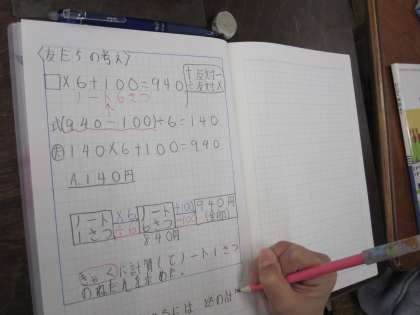 〈友だちの考え〉
□×6+100=940
ノート6さつ
+反対-
÷反対×
式(940-100)÷6=140
140×6+100=940
A.140円
ノート1さつ ×6 ÷6 ノート6さつ 840円 +100 -100 940円
ぎゃくに計算してノート1さつ
のねだんを求めた。
には